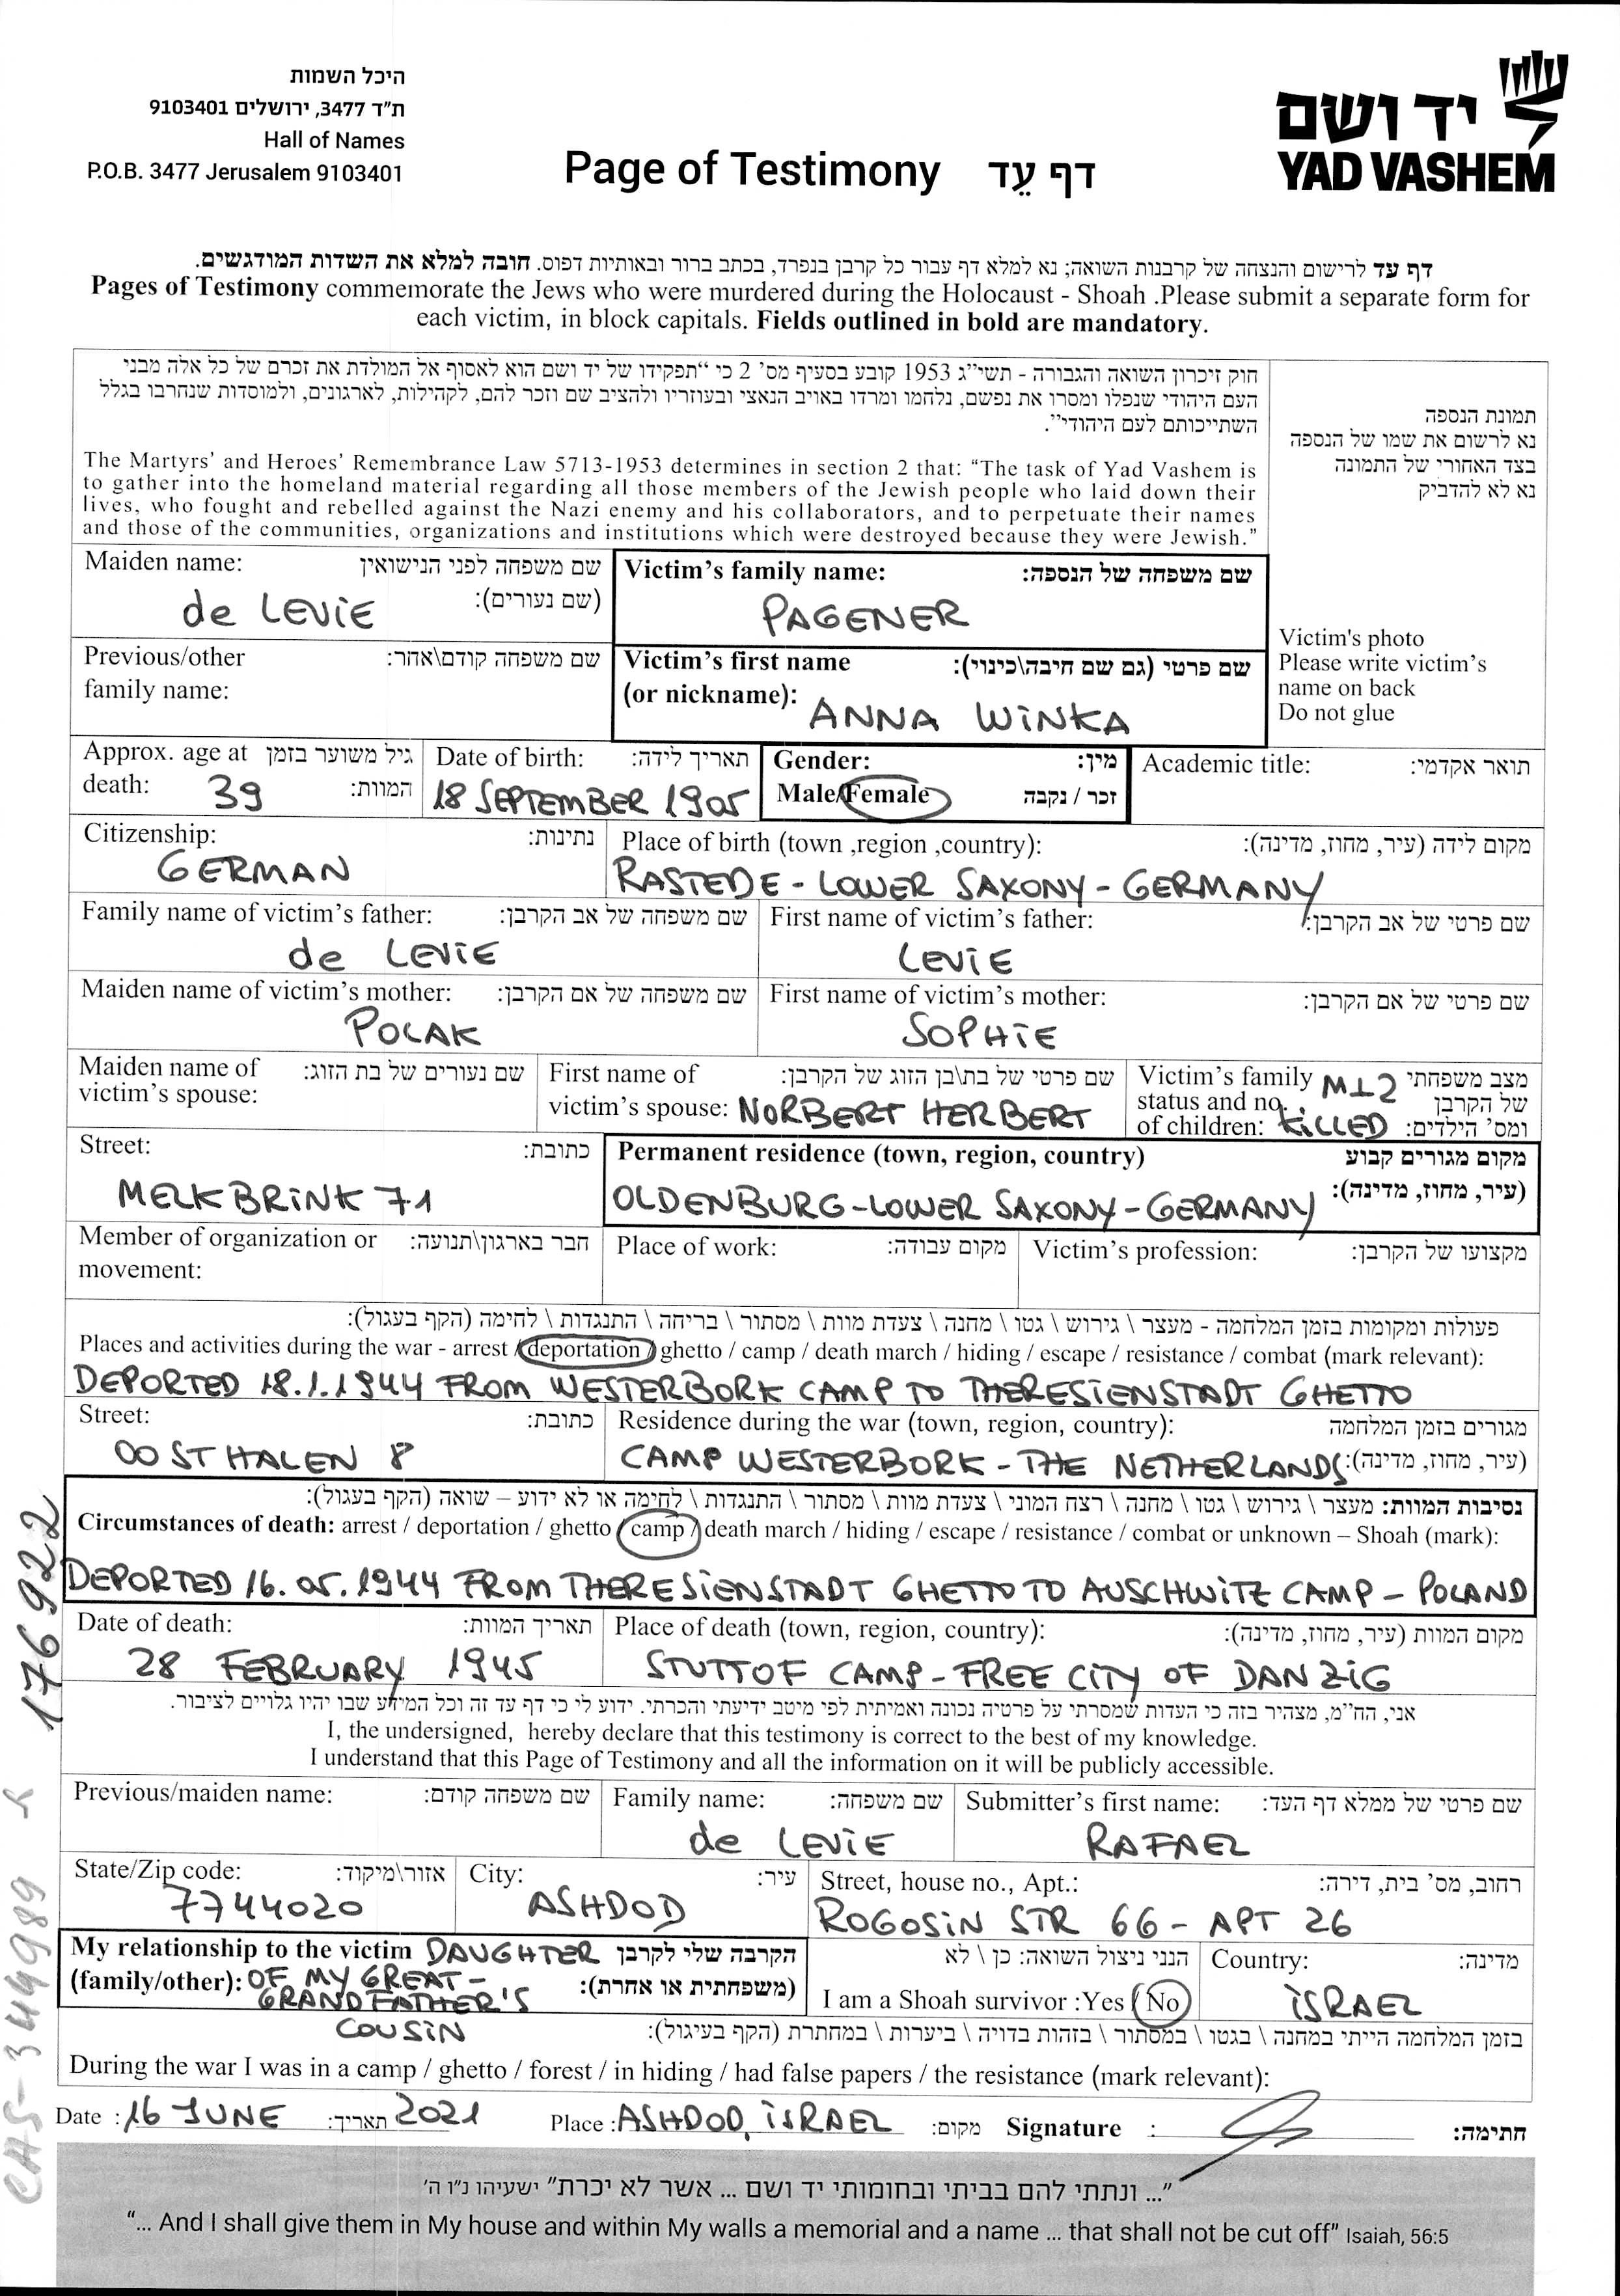 היכל השמות
ת"ד 3477, ירושלים 9103401
Hall of Names
P.O.B. 3477 Jerusalem 9103401
Page of Testimony דף עֵד
יד ושם
YAD VASHEM
דף עד לרישום והנצחה של קרבנות השואה; נא למלא דף עבור כל קרבן בנפרד, בכתב ברור ובאותיות דפוס. חובה למלא את השדות המודגשים.
Pages of Testimony commemorate the Jews who were murdered during the Holocaust - Shoah .Please submit a separate form for
each victim, in block capitals. Fields outlined in bold are mandatory.
חוק זיכרון השואה והגבורה - תשי"ג 1953 קובע בסעיף מס' 2 כי "תפקידו של יד ושם הוא לאסוף אל המולדת את זכרם של כל אלה מבני
העם היהודי שנפלו ומסרו את נפשם, נלחמו ומרדו באויב הנאצי ובעוזריו ולהציב שם וזכר להם, לקהילות, לארגונים, ולמוסדות שנחרבו בגלל
השתייכותם לעם היהודי".
The Martyrs' and Heroes' Remembrance Law 5713-1953 determines in section 2 that: "The task of Yad Vashem is
to gather into the homeland material regarding all those members of the Jewish people who laid down their
lives, who fought and rebelled against the Nazi enemy and his collaborators, and to perpetuate their names
and those of the communities, organizations and institutions which were destroyed because they were Jewish."
תמונת הנספה
נא לרשום את שמו של הנספה
בצד האחורי של התמונה
נא לא להדביק
Victim's photo
Please write victim's
name on back
Do not glue
Maiden name: שם משפחה לפני הנישואין
(שם נעורים):
de LEVIE
Victim's family name: שם משפחה של הנספה:
PAGENER
Previous/other שם משפחה קודם\אחר:
family name:
Victim's first name שם פרטי (גם שם חיבה\כינוי):
(or nickname): ANNA WINKA
Approx. age at גיל משוער בזמן
death: 39 המוות:
Date of birth: תאריך לידה:
18 SEPTEMBER 1905
Gender: מין:
Male/Female זכר / נקבה
Academic title: תואר אקדמי:
Citizenship: נתינות:
GERMAN
Place of birth (town ,region ,country): מקום לידה (עיר, מחוז, מדינה):
RASTEDE - LOWER SAXONY - GERMANY
Family name of victim's father: שם משפחה של אב הקרבן:
de LEVIE
First name of victim's father: שם פרטי של אב הקרבן:
LEVIE
Maiden name of victim's mother: שם משפחה של אם הקרבן:
POLAK
First name of victim's mother: שם פרטי של אם הקרבן:
SOPHIE
Maiden name of שם נעורים של בת הזוג:
victim's spouse:
First name of שם פרטי של בת\בן הזוג של הקרבן:
victim's spouse: NORBERT HERBERT
Victim's family M+2 מצב משפחתי
status and no. של הקרבן
of children: KILLED ומס' הילדים:
Street: כתובת:
MELKBRINK 71
Permanent residence (town, region, country) מקום מגורים קבוע
(עיר, מחוז, מדינה):
OLDENBURG - LOWER SAXONY - GERMANY
Member of organization or חבר בארגון\תנועה:
movement:
Place of work: מקום עבודה:
Victim's profession: מקצועו של הקרבן:
פעולות ומקומות בזמן המלחמה - מעצר \ גירוש \ גטו \ מחנה \ צעדת מוות \ מסתור \ בריחה \ התנגדות \ לחימה (הקף בעגול):
Places and activities during the war - arrest / deportation / ghetto / camp / death march / hiding / escape / resistance / combat (mark relevant):
DEPORTED 18.1.1944 FROM WESTERBORK CAMP TO THERESIENSTADT GHETTO
Street: כתובת:
OOSTHALEN 8
Residence during the war (town, region, country): מגורים בזמן המלחמה
(עיר, מחוז, מדינה):
CAMP WESTERBORK - THE NETHERLANDS
נסיבות המוות: מעצר \ גירוש \ גטו \ מחנה \ רצח המוני \ צעדת מוות \ מסתור \ התנגדות \ לחימה או לא ידוע – שואה (הקף בעגול):
Circumstances of death: arrest / deportation / ghetto / camp / death march / hiding / escape / resistance / combat or unknown – Shoah (mark):
DEPORTED 16.05.1944 FROM THERESIENSTADT GHETTO TO AUSCHWITZ CAMP - POLAND
Date of death: תאריך המוות:
28 FEBRUARY 1945
Place of death (town, region, country): מקום המוות (עיר, מחוז, מדינה):
STUTTOF CAMP - FREE CITY OF DANZIG
אני, הח"מ, מצהיר בזה כי העדות שמסרתי על פרטיה נכונה ואמיתית לפי מיטב ידיעתי והכרתי. ידוע לי כי דף עד זה וכל המידע שבו יהיו גלויים לציבור.
I, the undersigned, hereby declare that this testimony is correct to the best of my knowledge.
I understand that this Page of Testimony and all the information on it will be publicly accessible.
Previous/maiden name: שם משפחה קודם:
Family name: שם משפחה:
de LEVIE
Submitter's first name: שם פרטי של ממלא דף העד:
RAFAEL
State/Zip code: אזור\מיקוד:
7744020
City: עיר:
ASHDOD
Street, house no., Apt.: רחוב, מס' בית, דירה:
ROGOSIN STR 66 - APT 26
My relationship to the victim DAUGHTER הקרבה שלי לקרבן
(family/other): OF MY GREAT- (משפחתית או אחרת):
GRANDFATHER'S
COUSIN
הנני ניצול השואה: כן \ לא
I am a Shoah survivor :Yes / No
Country: מדינה:
ISRAEL
בזמן המלחמה הייתי במחנה \ בגטו \ במסתור \ בזהות בדויה \ ביערות \ במחתרת (הקף בעיגול):
During the war I was in a camp / ghetto / forest / in hiding / had false papers / the resistance (mark relevant):
Date : 16 JUNE תאריך: 2021 Place : ASHDOD, ISRAEL מקום: Signature : חתימה:
"... ונתתי להם בביתי ובחומותי יד ושם ... אשר לא יכרת" ישעיהו נ"ו ה'
"... And I shall give them in My house and within My walls a memorial and a name ... that shall not be cut off" Isaiah, 56:5
176922
CAS-344989